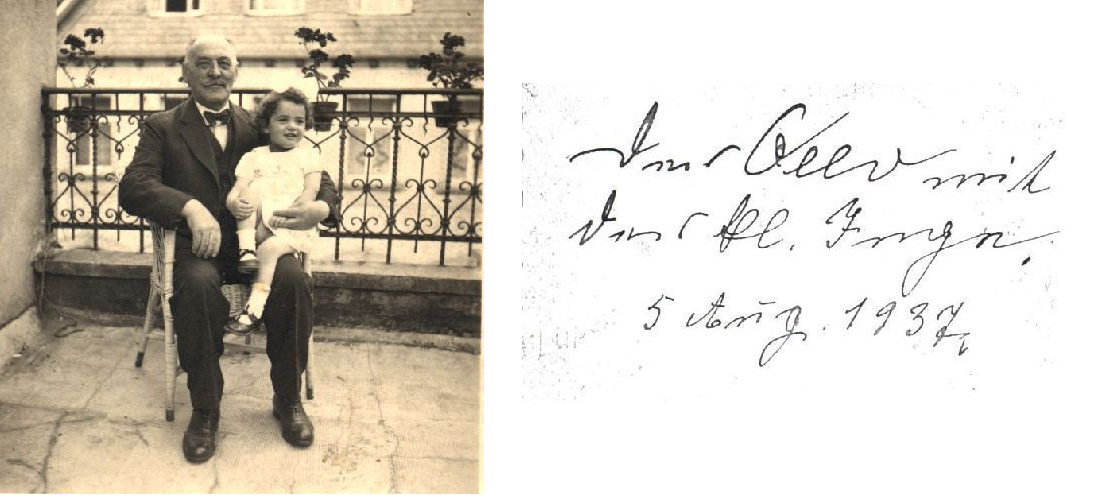 Der mit
der kl. Inge.
5 Aug. 1937.